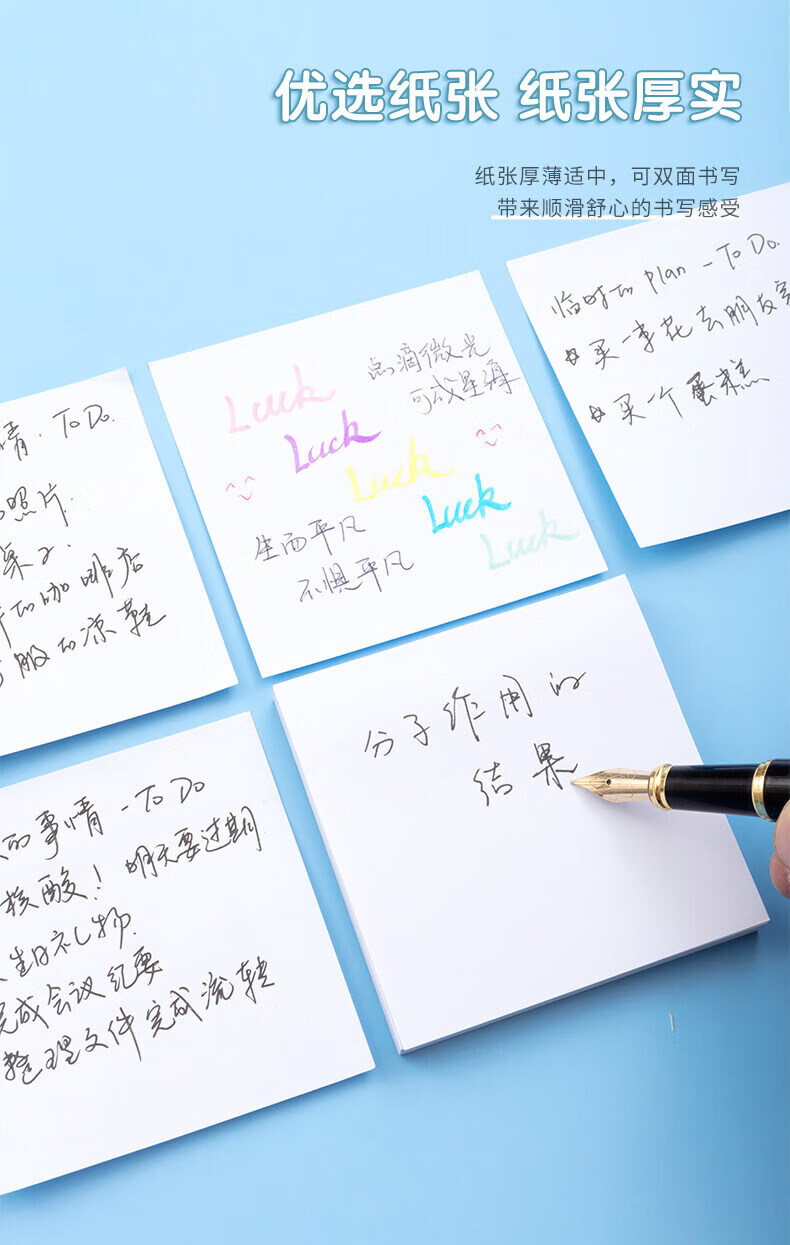 优选纸张 纸张厚实
纸张厚薄适中，可双面书写
带来顺滑舒心的书写感受
临时的 plan - To Do.
买一季花去朋友家
买一个蛋糕
点滴微光
可成星海
Luck
Luck
Luck
Luck
Luck
生而平凡
不惧平凡
情. To Do.
照片.
桌子.
的咖啡店
服的凉鞋
分子作用的
结果
的事情 - To Do
核酸! 明天要过期
生日礼物.
完成会议纪要
整理文件完成流转